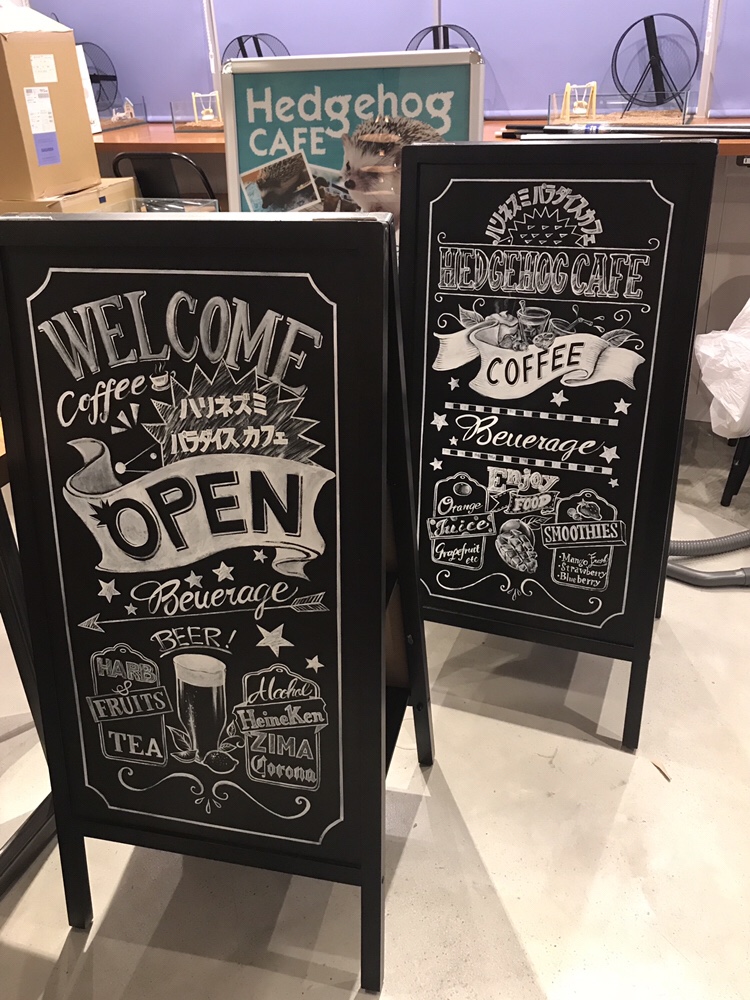 Hedgehog
CAFE
WELCOME
Coffee
ハリネズミ
パラダイス カフェ
OPEN
Beverage
BEER!
HARB
&
FRUITS
TEA
Alcohol
HeineKen
ZIMA
Corona
ハリネズミパラダイスカフェ
HEDGEHOG CAFE
COFFEE
Beverage
Enjoy
FOOD
Orange
Juice
Grapefruit
etc
SMOOTHIES
・Mango Fresh
・Strawberry
・Blueberry